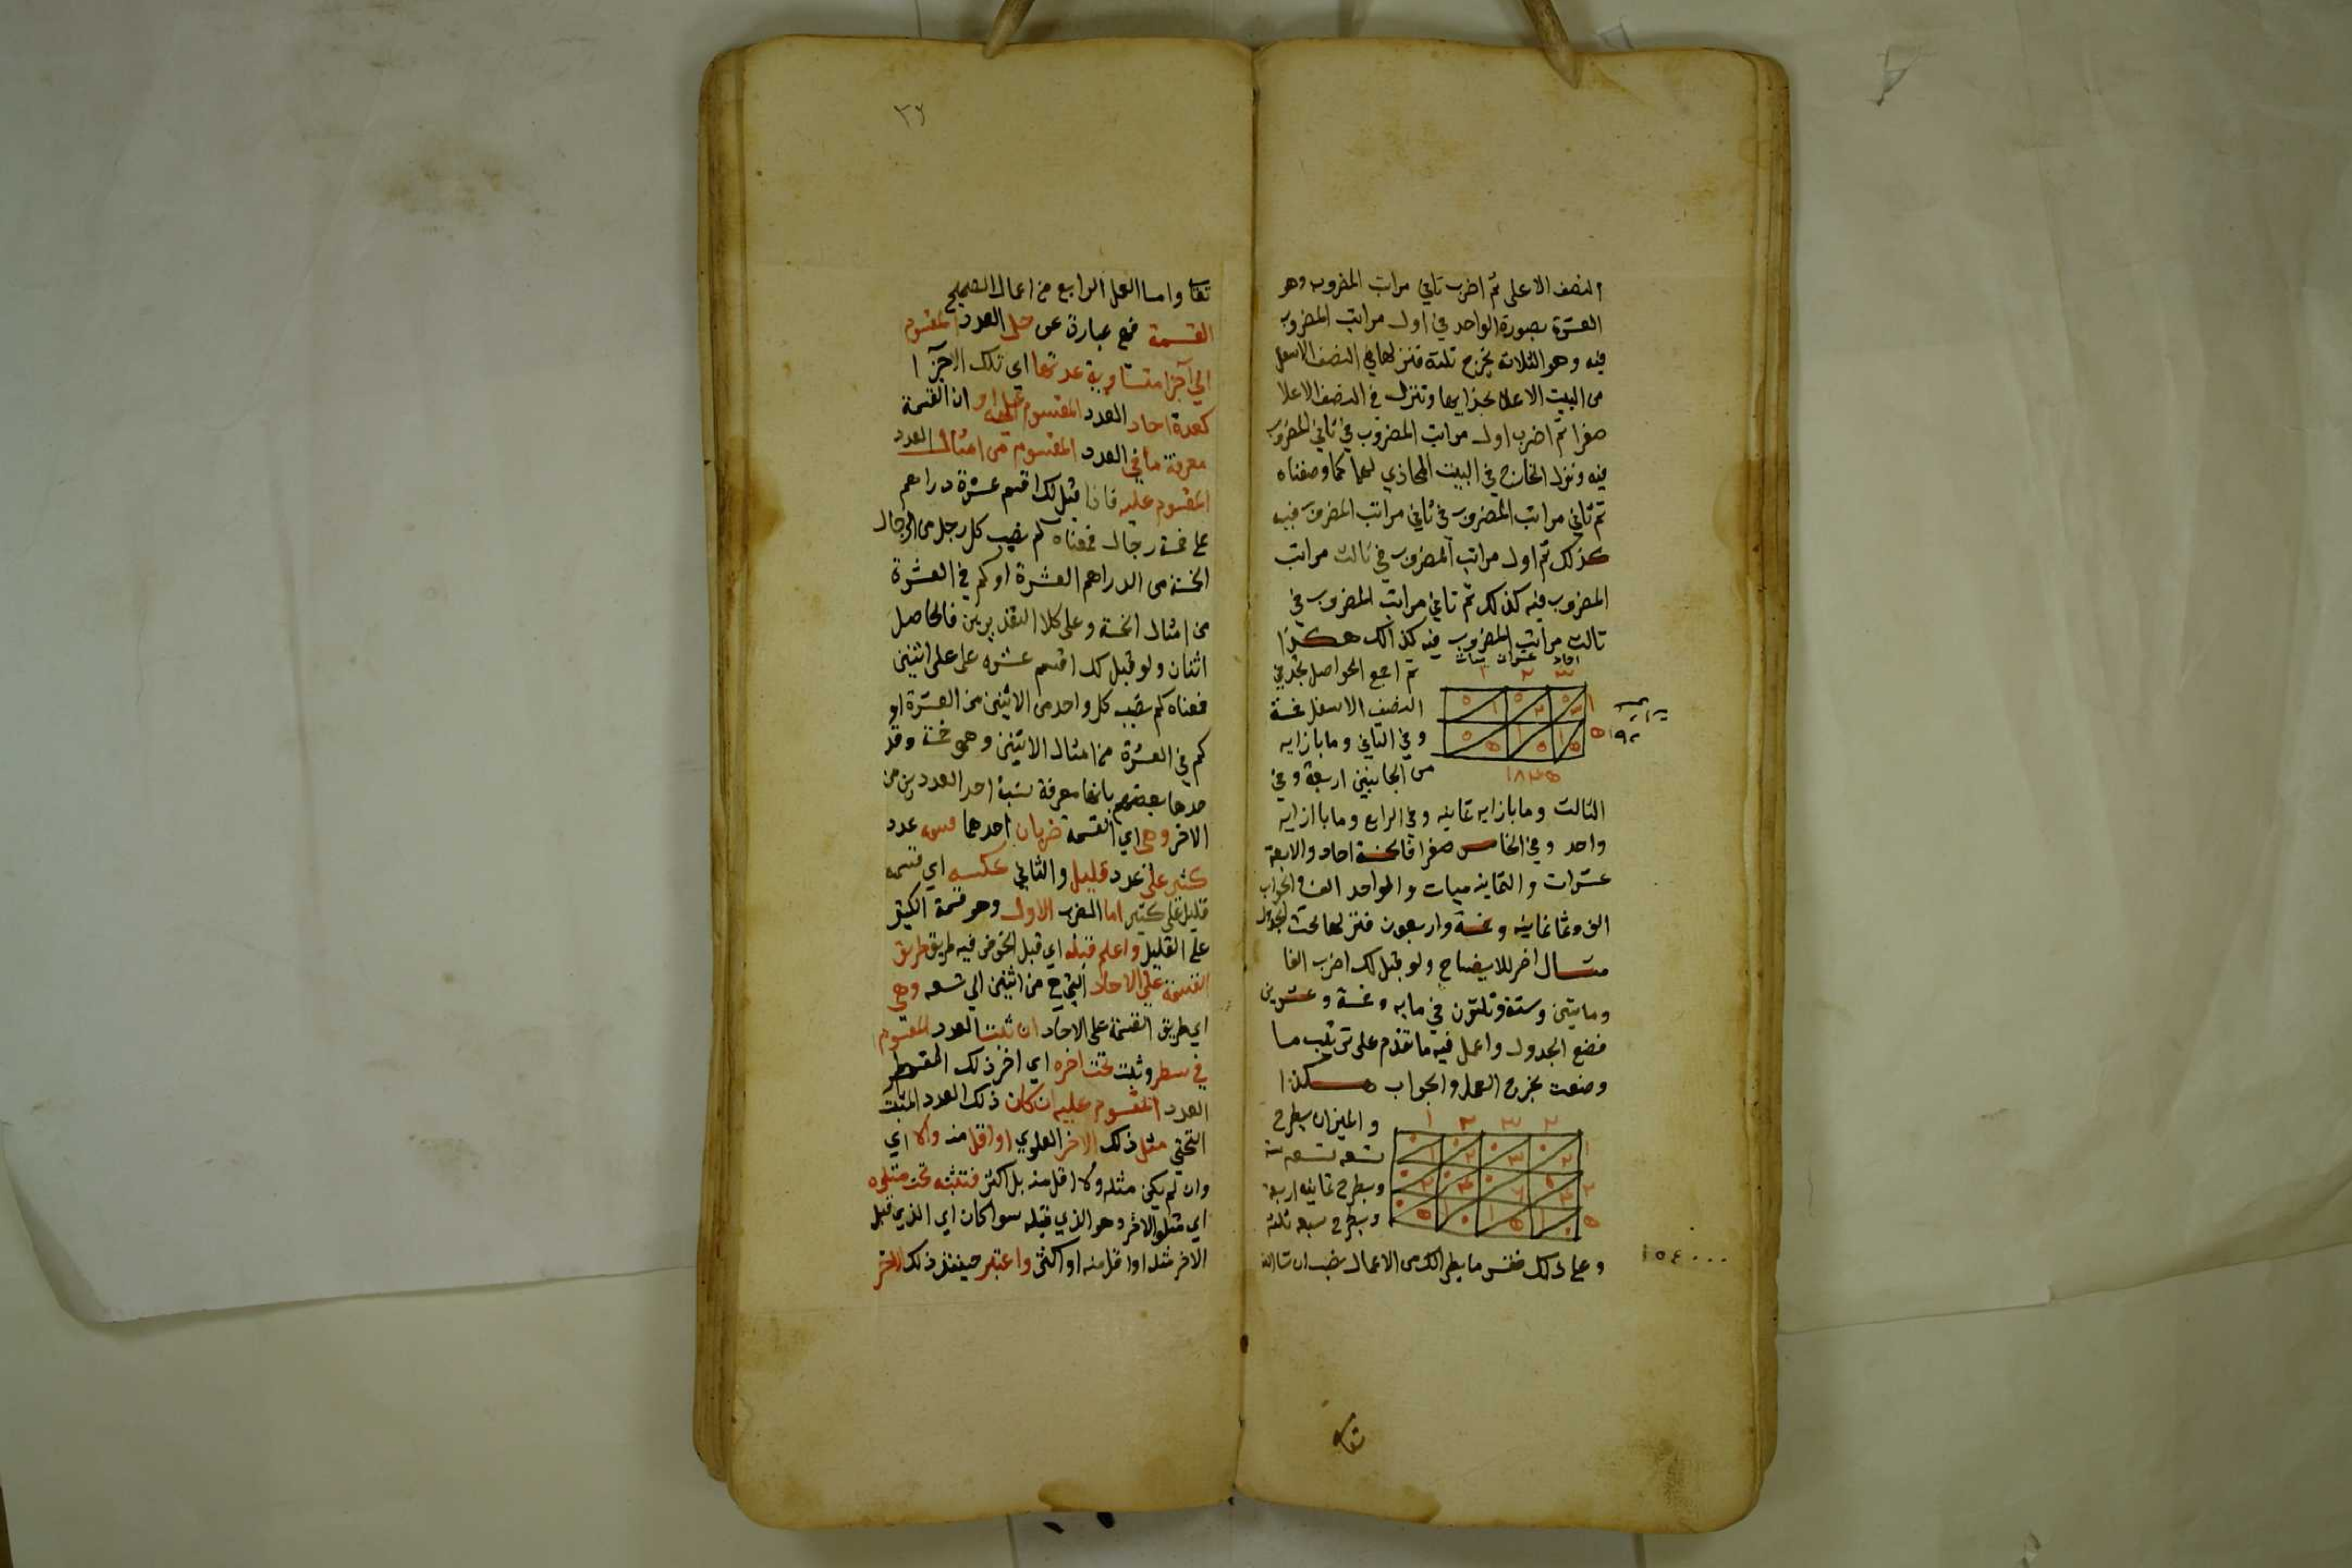 النصف الاعلى ثم اضرب ثاني مراتب المضروب وهو
العشرة بصورة الواحد في اول مراتب المضروب
فيه وهو الثلاثة يخرج ثلثة فنزلها في النصف الاسفل
من البيت الاعلا بحذايها وتنزل في النصف الاعلا
صفرا ثم اضرب اول مراتب المضروب في ثاني المضروب
فيه ونزل الخارج في البيت المحاذي لهما كما وصفناه
ثم ثاني مراتب المضروب في ثاني مراتب المضروب فيه
كذلك ثم اول مراتب المضروب في ثالث مراتب
المضروب فيه كذلك ثم ثاني مراتب المضروب في
ثالث مراتب المضروب فيه كذالك هكذا
احاد عشرات ميات
٣ ٢ ١
ثم اجمع الحواصل تجد في
النصف الاسفل خمسة
وفي الثاني وما بازايه
من الجانبين اربعة وفي
١٨٤٥
الثالث وما بازايه ثمانيه وفي الرابع وما باازايه
واحد وفي الخامس صفرا فالخمسة احاد والاربعة
عشرات والثمانيه ميات والواحد الف والجواب
الف وثمانمايه وخمسة واربعون فنزلها تحت الجدول
مثال اخر للايضاح ولو قيل لك اضرب الفا
ومايتين وستة وثلثون في مايه وخمسة وعشرين
فضع الجدول واعمل فيه ما تقدم على ترتيب ما
وصفت يخرج العمل والجواب هكذا
والميزان بطرح
تسعه تسعه ستة
وبطرح ثمانيه اربعة
وبطرح سبعه ثلثه
وعلى ذلك فقس ما يطرا لك من الاعمال تصب ان شا الله
١٥٤٠٠٠
تعالى
٣٢
تعالى واما العمل الرابع من اعمال الصحيح
القسمة فهي عبارة عن حل العدد المقسوم
الي اجزا متساوية عدتها اي تلك الاجزا
كعدة احاد العدد المقسوم عليه او ان القسمة
معرفة ما في العدد المقسوم من امثال العدد
المقسوم عليه فاذا قيل لك اقسم عشرة دراهم
على خمسة رجال فمعناه كم نصيب كل رجل من الرجال
الخمسة من الدراهم العشرة او كم في العشرة
من امثال الخمسة وعلى كلا التقديرين فالحاصل
اثنان ولو قيل لك اقسم عشره على على اثنين
فمعناه كم نصيب كل واحد من الاثنين من العشرة او
كم في العشرة من امثال الاثنين وهي خمسة وقد
حدها بعضهم بانها معرفة نسبة احد العددين من
الاخر وهي اي القسمة ضربان احدهما قسمه عدد
كثير على عدد قليل والثاني عكسه اي قسمه
قليل على كثير اما الضرب الاول وهو قسمة الكثير
على القليل واعلم قبله اي قبل الخوض فيه طريق طريق
القسمة على الاحاد التي هي من اثنين الي تسعه وهي
اي طريق القسمة على الاحاد ان تثبت العدد المقسوم
في سطر وتثبت تحت اخره اي اخر ذلك السطر
العدد المقسوم عليه ان كان ذلك العدد المثبت
التحتي مثل ذلك الاخر العلوي او اقل منه والا اي
وان لم يكن مثله ولا اقل منه بل اكثر فتثبته تحت متلوه
اي متلو الاخر وهو الذي قبله سوا كان اي الذي قبل
الاخر مثله او اقل منه او اكثر واعتبر حينئذ ذلك الاخر